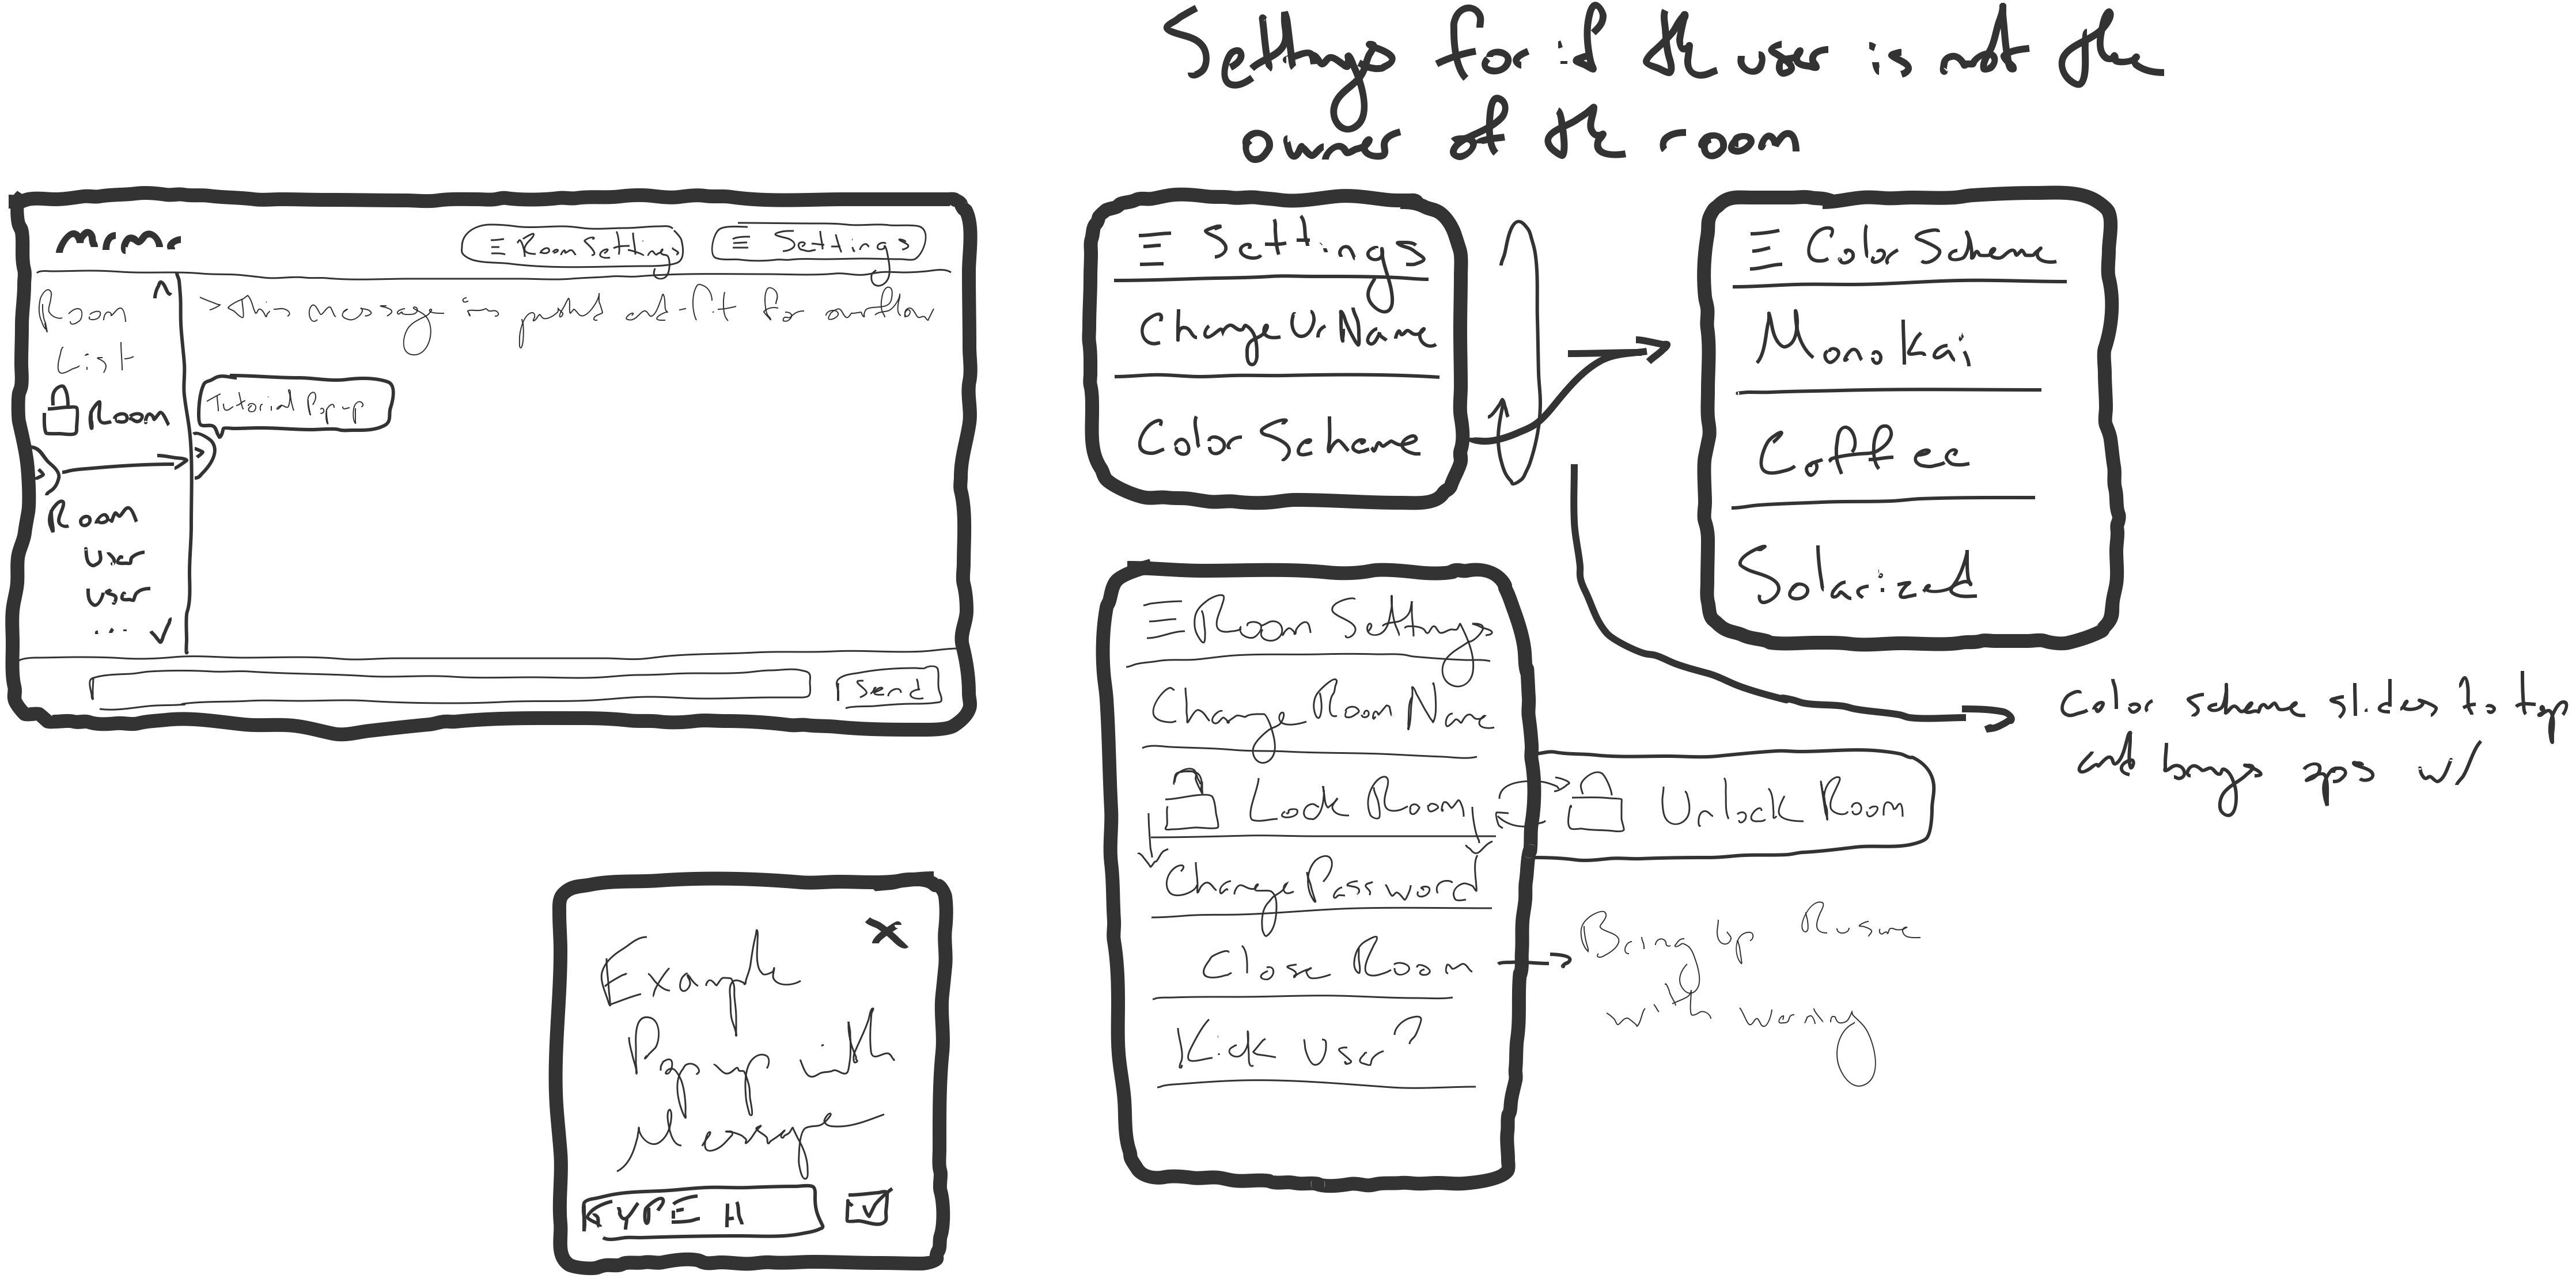 Settings for if the user is not the
owner of the room
mrmr
≡ Room Settings
≡ Settings
Room
List
Room
Room
user
user
...
> this message is pushd and-fit for overflow
Tutorial Pop-up
Send
≡ Settings
Change Ur Name
Color Scheme
≡ Color Scheme
Monokai
Coffee
Solarized
Color scheme slides to top
and brings ops w/
≡ Room Settings
Change Room Name
Lock Room
Unlock Room
Change Password
Close Room
Bring up
with warning
Kick user?
X
Example
Pop up with
Message
TYPE H